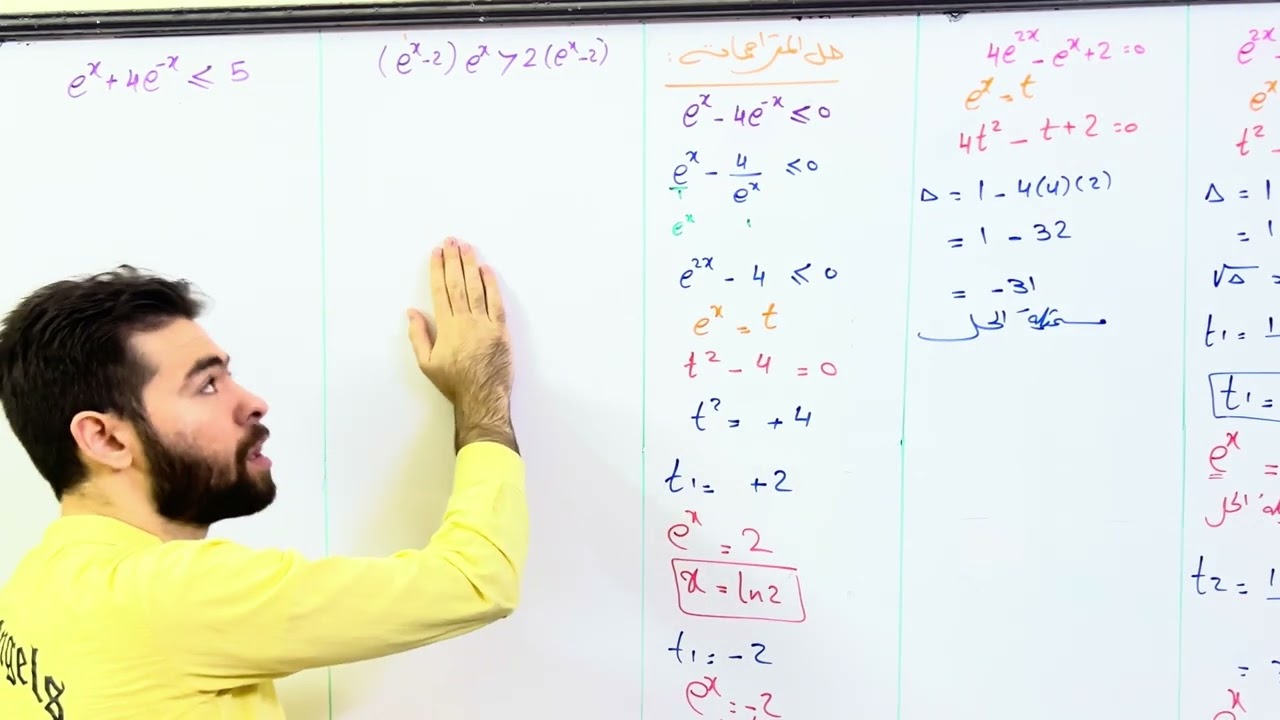 e^x + 4e^-x ≤ 5
(e^x - 2) e^x > 2 (e^x - 2)
حل المتراجحات :
e^x - 4e^-x ≤ 0
e^x - 4/e^x ≤ 0
1
e^x 1
e^2x - 4 ≤ 0
e^x = t
t² - 4 = 0
t² = +4
t1 = +2
e^x = 2
x = ln2
t1 = -2
e^x = -2
4e^2x - e^x + 2 = 0
e^x = t
4t² - t + 2 = 0
Δ = 1 - 4(4)(2)
= 1 - 32
= -31
مستحيلة الحل
e^2x -
e^x
t² -
Δ = 1
= 1
√Δ =
t1 = 1
t1 =
e^x =
الحل
t2 = 1
=
e^x